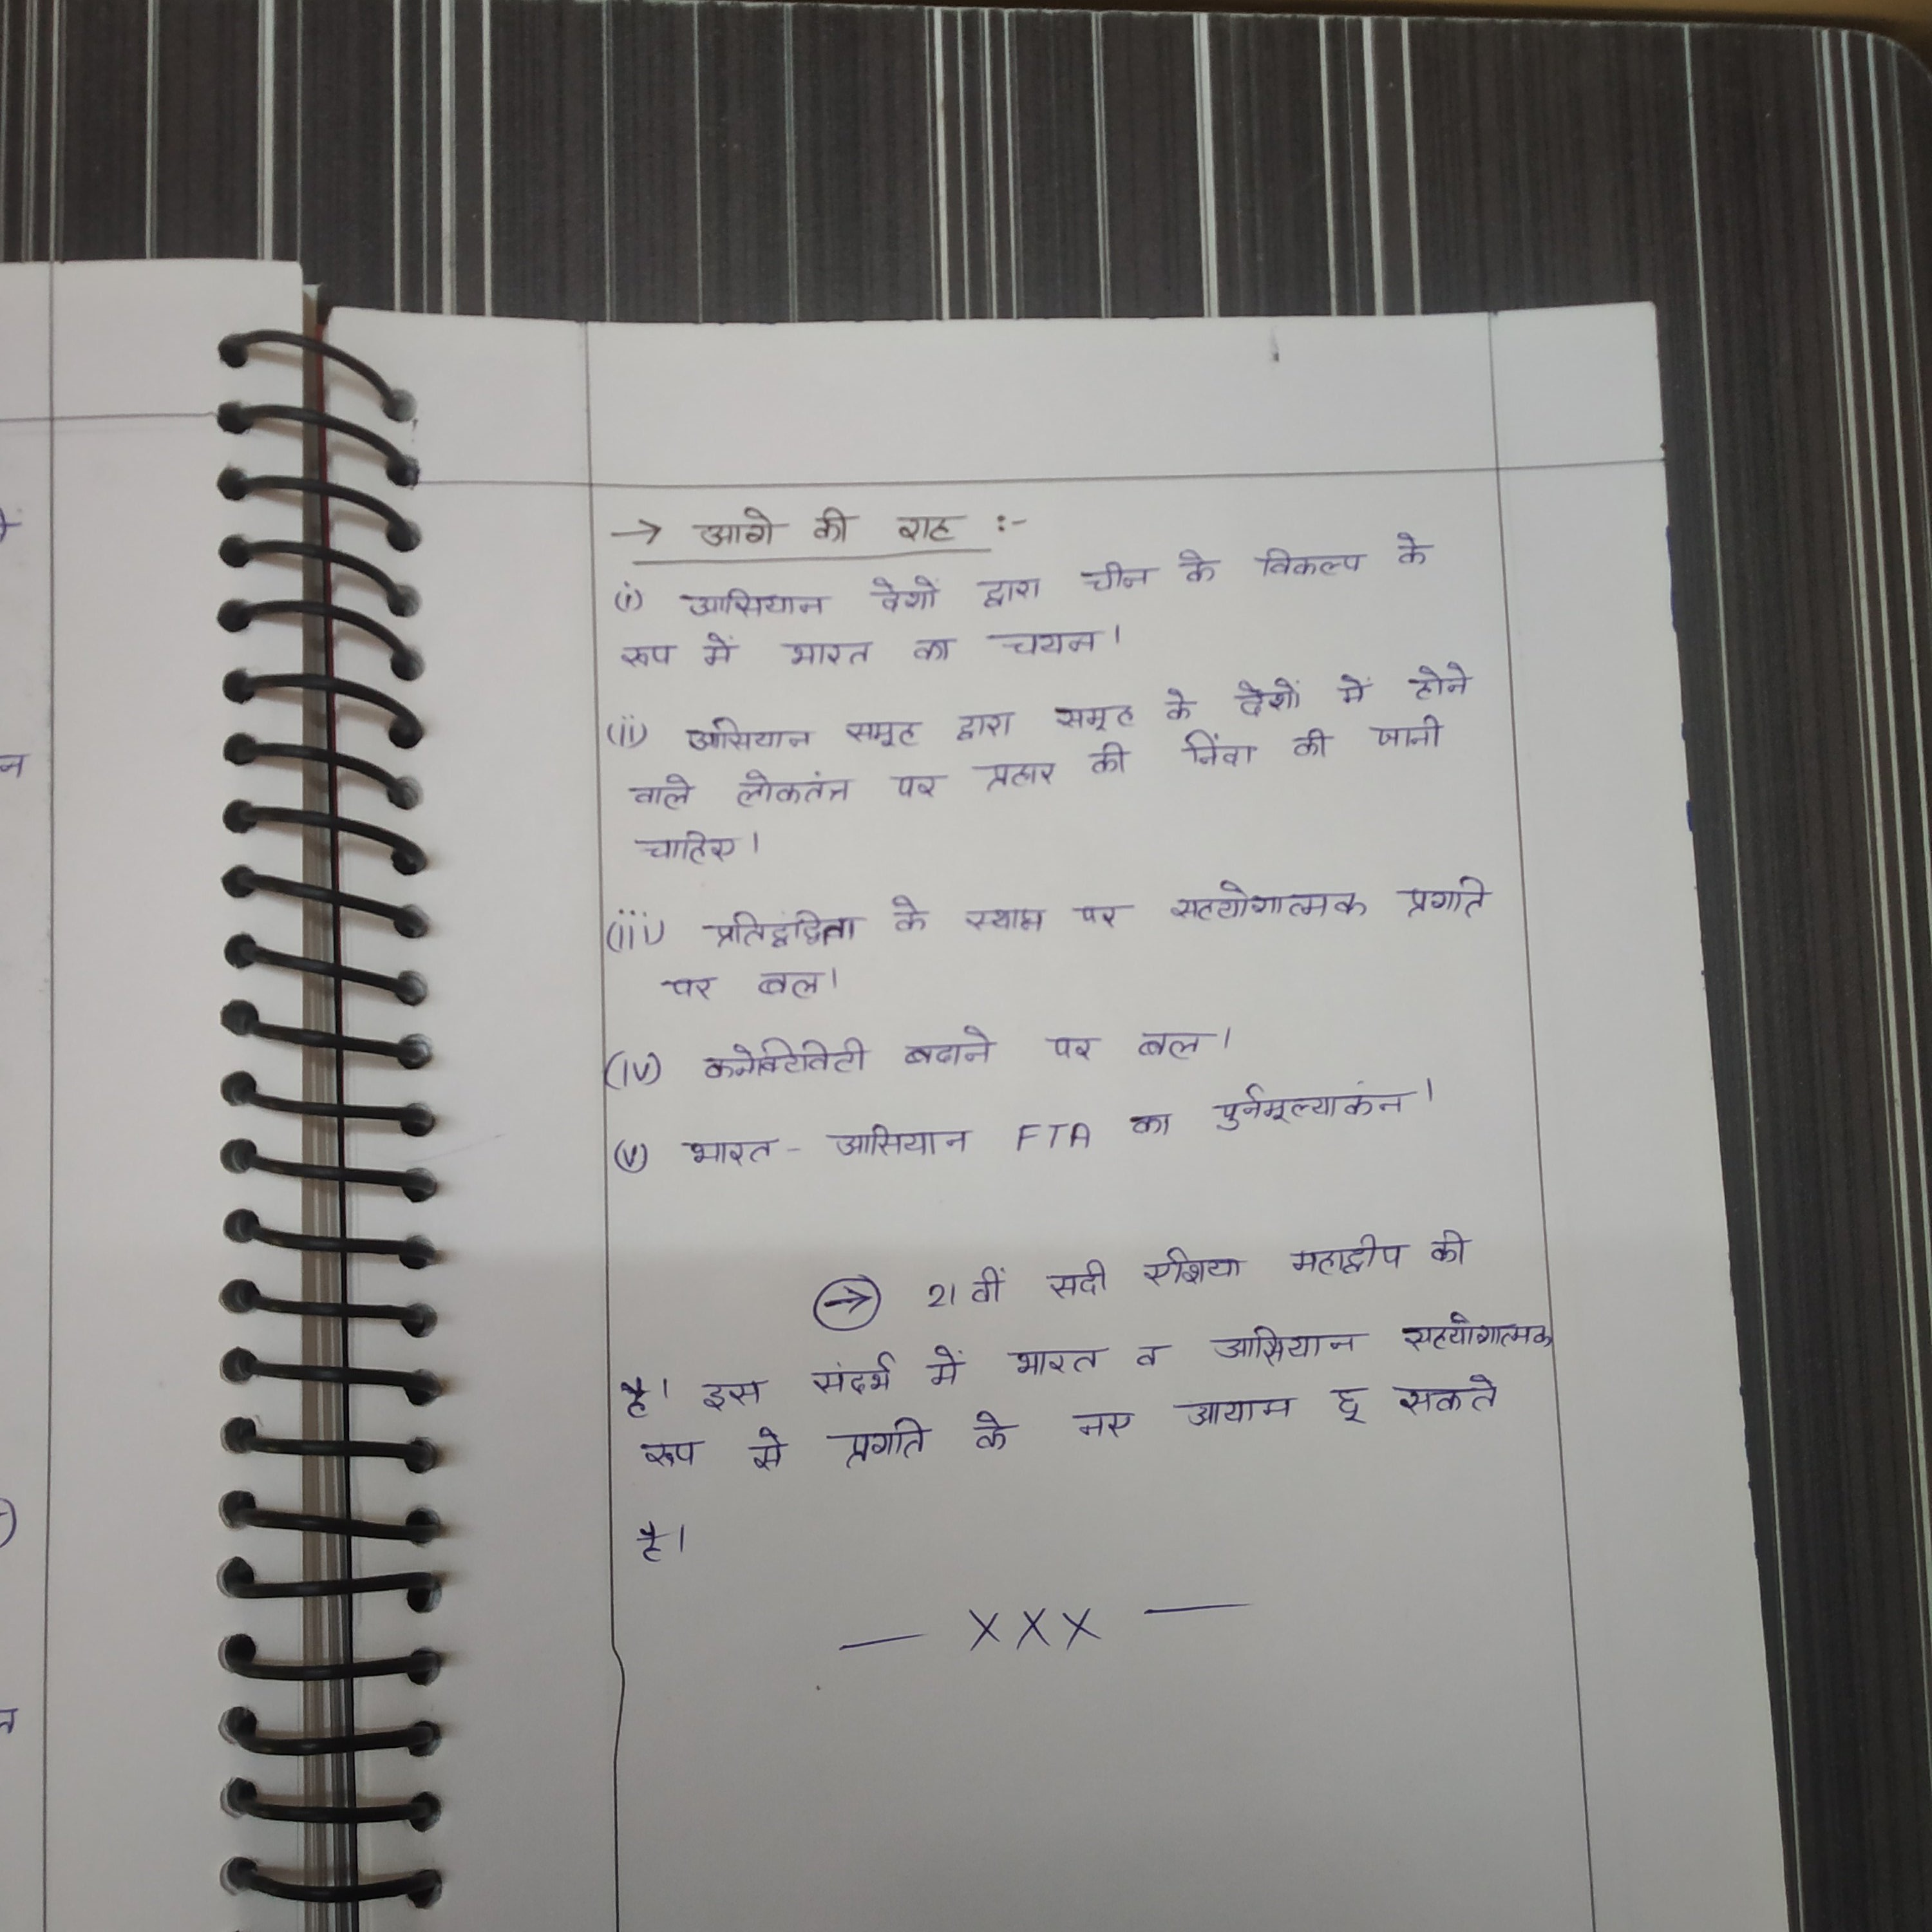 → आगे की राह :-
(i) आसियान देशों द्वारा चीन के विकल्प के
रूप में भारत का चयन।
(ii) आसियान समूह द्वारा समूह के देशों में होने
वाले लोकतंत्र पर प्रहार की निंदा की जानी
चाहिए।
(iii) प्रतिद्वंद्विता के स्थान पर सहयोगात्मक प्रगति
पर बल।
(iv) कनेक्टिविटी बढाने पर बल।
(v) भारत - आसियान FTA का पुर्नमूल्याकंन।
→ 21 वीं सदी एशिया महाद्वीप की
है। इस संदर्भ में भारत व आसियान सहयोगात्मक
रूप से प्रगति के नए आयाम छू सकते
है।
— X X X —